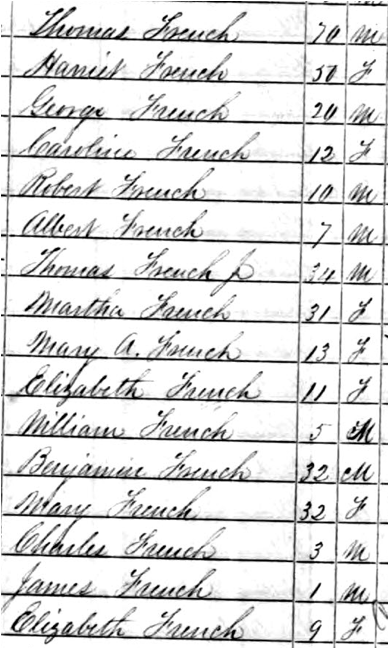 Thomas French 70 M
Harriet French 50 F
George French 20 M
Caroline French 12 F
Robert French 10 M
Albert French 7 M
Thomas French Jr 34 M
Martha French 31 F
Mary A. French 13 F
Elizabeth French 11 F
William French 5 M
Benjamin French 32 M
Mary French 32 F
Charles French 3 M
James French 1 M
Elizabeth French 9 F